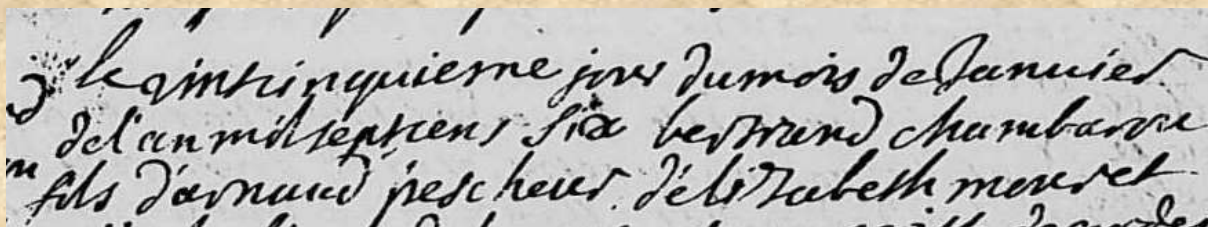 le vintcinquieme jour du mois de Janvier
de l'an mil sept cens six bertrand chambarou
fils d'arnaud pescheur d'elizabeth mouret